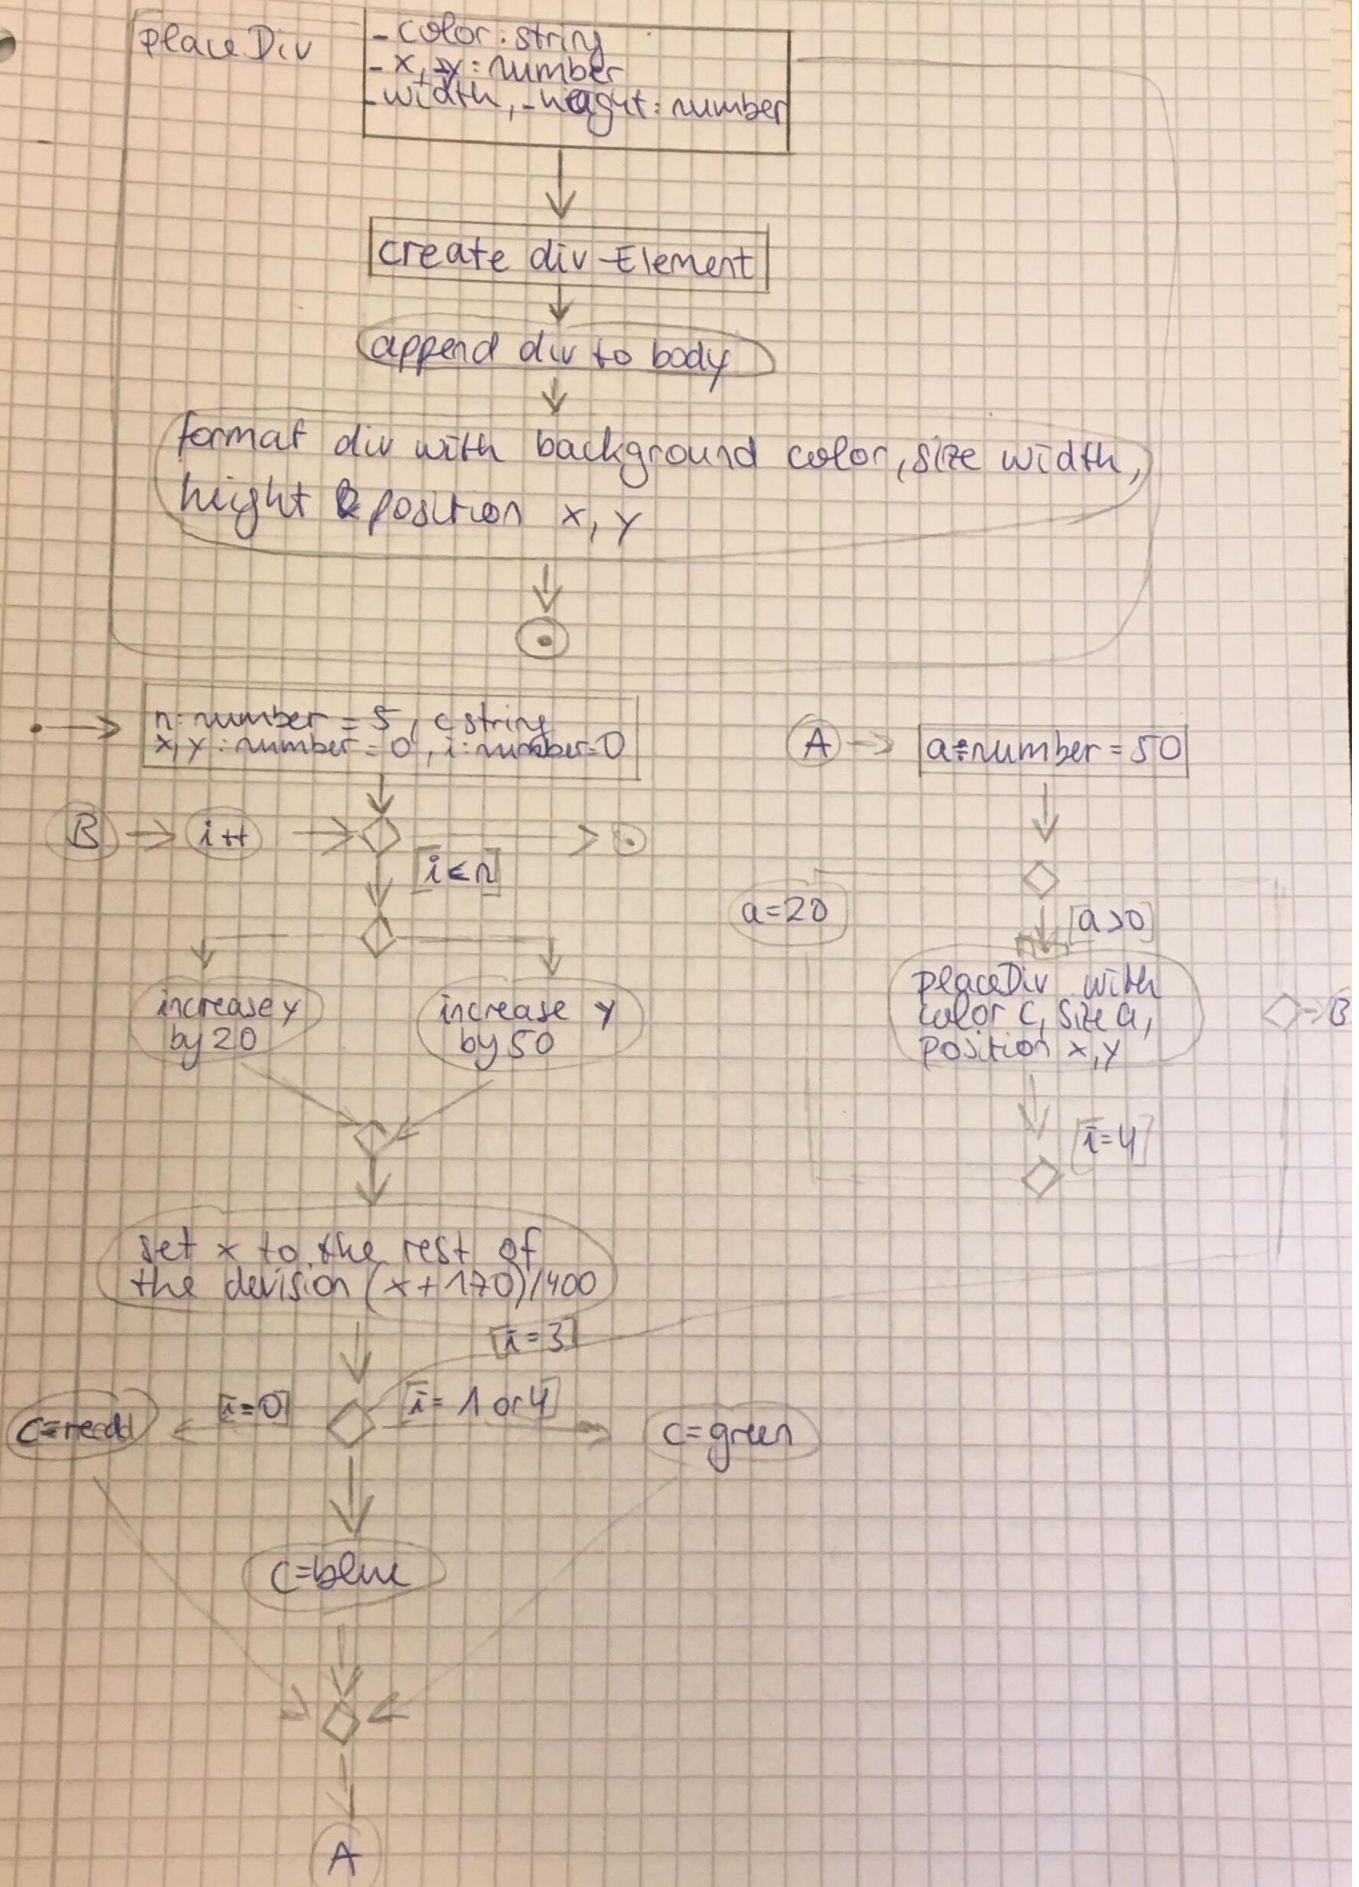 placeDiv
- color: string
- x, y: number
- width, - height: number
create div-Element
append div to body
format div with background color, size width,
height & position x, y
n: number = 5, c string
x, y: number = 0, i: number = 0
B
i++
[i<n]
increase y
by 20
increase y
by 50
set x to the rest of
the devision (x+170)/400
[i=3]
[i=0]
[i= 1 or 4]
c=red
c=green
c=blue
A
A
a: number = 50
a=20
[a>0]
placeDiv with
color c, size a,
position x, y
B
[i=4]